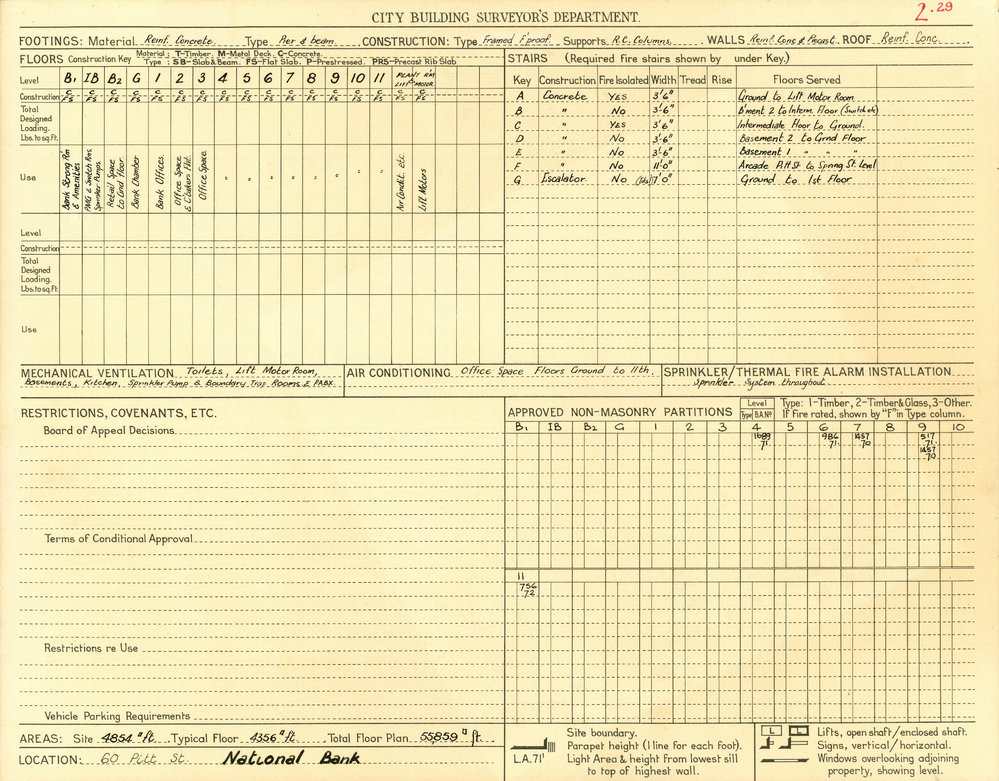 CITY BUILDING SURVEYOR'S DEPARTMENT.
2.29
FOOTINGS: Material Reinf. Concrete. Type Pier & beam. CONSTRUCTION: Type Framed F'proof. Supports R.C. Columns. WALLS Reinf. Conc & Precast. ROOF Reinf. Conc.
FLOORS Construction Key Material: T-Timber. M-Metal Deck. C-Concrete.
Type: SB-Slab & Beam. FS-Flat Slab. P-Prestressed. PRS-Precast Rib Slab
Level B1 IB B2 G 1 2 3 4 5 6 7 8 9 10 11 PLANT RM LIFT MOTOR
Construction C C C C C C C C C C C C C C C C C
FS FS FS FS FS FS FS FS FS FS FS FS FS FS FS FS FS
Total Designed Loading. Lbs. to sq. ft.
Use
Bank Strong Rm & Amenities
PMG & Switch Rms. Sprinkler Pumps.
Retail Space to Grnd Floor.
Bank Chamber
Bank Offices.
Office Space & C'takers Flat.
Office Space.
" " " " " " " "
Air Condit. etc
Lift Motors
Level
Construction
Total Designed Loading. Lbs. to sq. ft.
Use
STAIRS (Required Fire stairs shown by under Key.)
Key Construction Fire Isolated Width Tread Rise Floors Served
A Concrete YES 3'6" Ground to Lift Motor Room
B " No 3'-6" B'ment 2 to Interm. Floor (Switch etc)
C " YES 3'6" Intermediate Floor to Ground.
D " No 3'-6" Basement 2 to Grnd Floor
E " No 3'-6" Basement 1 " " "
F " No 11'0" Arcade Pitt St to Spring St. Level
G Escalator No 7'0" Ground to 1st Floor
MECHANICAL VENTILATION Toilets, Lift Motor Room,
Basements, Kitchen, Sprinkler Pump & Boundary Trap Rooms & PABX.
AIR CONDITIONING Office Space Floors Ground to 11th.
SPRINKLER/THERMAL FIRE ALARM INSTALLATION
Sprinkler System throughout
RESTRICTIONS, COVENANTS, ETC.
Board of Appeal Decisions
Terms of Conditional Approval
Restrictions re Use
Vehicle Parking Requirements
APPROVED NON-MASONRY PARTITIONS Level Type B.A.Nº Type: 1-Timber, 2-Timber & Glass, 3-Other.
If fire rated, shown by "F" in Type column.
B1 IB B2 G 1 2 3 4 5 6 7 8 9 10
1689 71 986 71 1457 70 517 71
1457 70
11
756 72
AREAS: Site 4854 □"ft. Typical Floor 4356 □"ft. Total Floor Plan 55,859 □"ft.
LOCATION: 60 Pitt St. National Bank
Site boundary.
Parapet height (1 line for each foot).
L.A. 71' Light Area & height from lowest sill
to top of highest wall.
L Lifts, open shaft/enclosed shaft.
Signs, vertical/horizontal.
Windows overlooking adjoining
property, showing level.